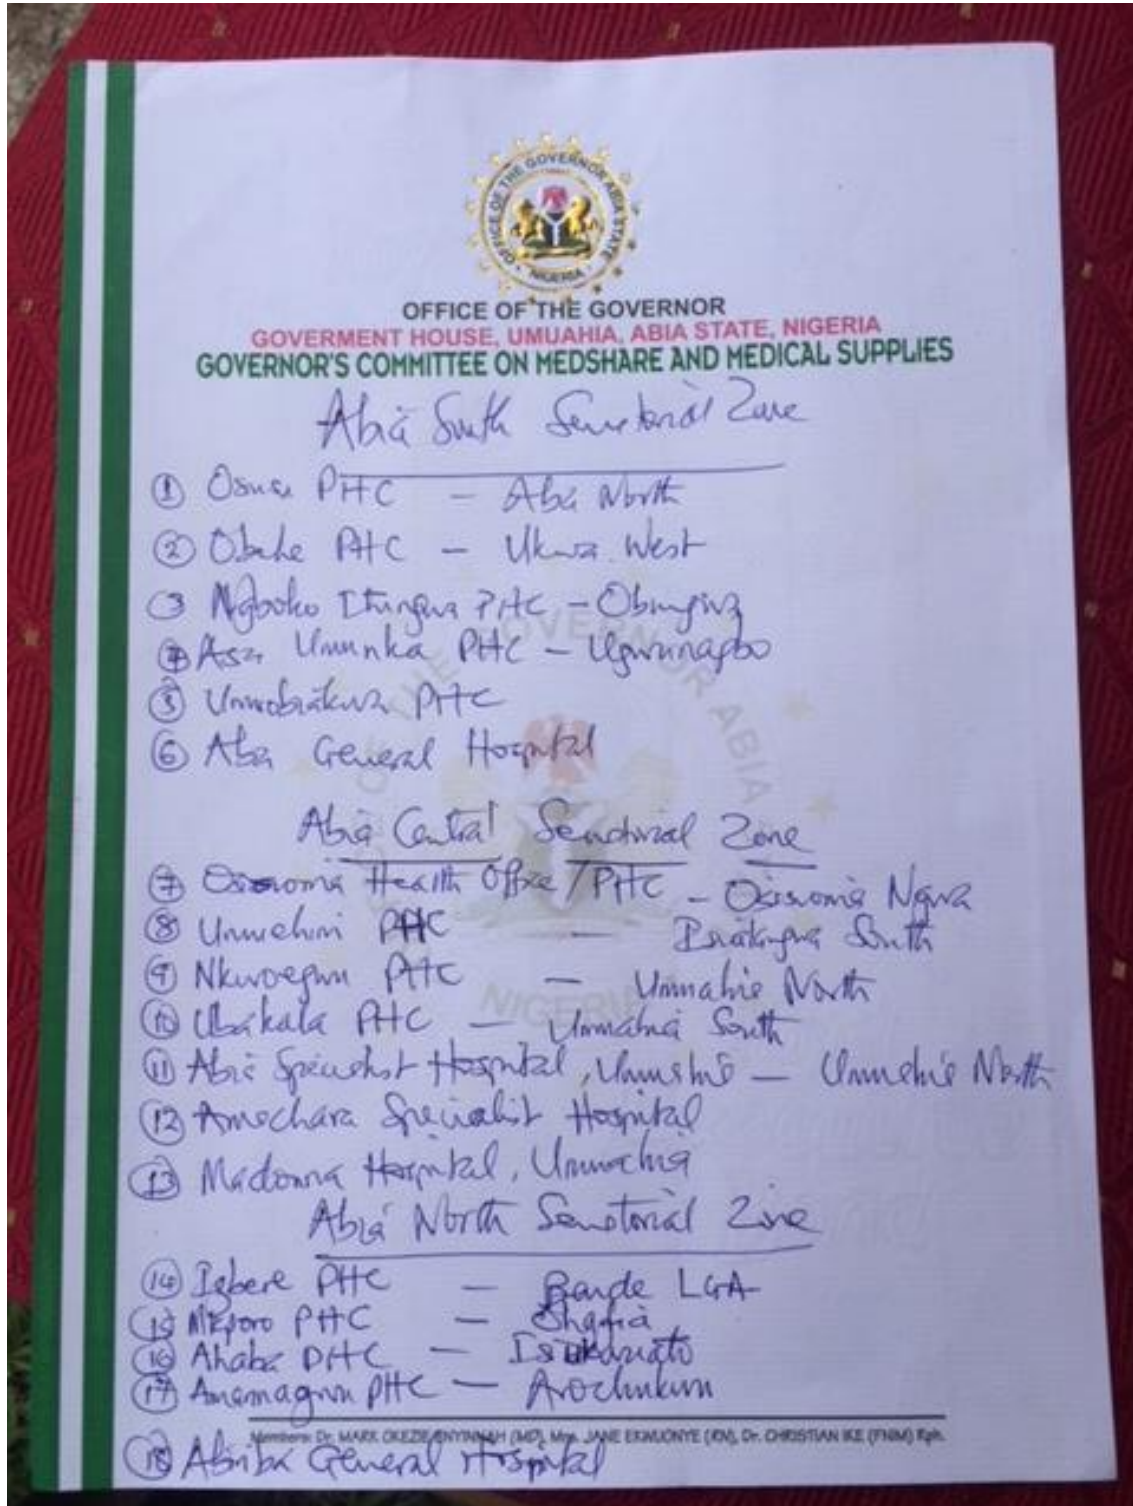 OFFICE OF THE GOVERNOR ABIA STATE
NIGERIA
OFFICE OF THE GOVERNOR
GOVERMENT HOUSE, UMUAHIA, ABIA STATE, NIGERIA
GOVERNOR'S COMMITTEE ON MEDSHARE AND MEDICAL SUPPLIES
Abia South Senatorial Zone
① Osusu PHC — Aba North
② Obehe PHC — Ukwa West
3 Ngboko Itungwa PHC — Obingwa
④ Asa Umunka PHC — Ugwunagbo
⑤ Umuobiakwa PHC
⑥ Aba General Hospital
Abia Central Senatorial Zone
⑦ Osisioma Health Office / PHC — Osisioma Ngwa
⑧ PHC — Isialangwa South
⑨ Nkwoegwu PHC — Umuahia North
⑩ Ubakala PHC — Umuahia South
⑪ Abia Specialist Hospital, Umuahia — Umuahia North
⑫ Amachara Specialist Hospital
⑬ Madonna Hospital, Umuahia
Abia North Senatorial Zone
⑭ Igbere PHC — Bende LGA
⑮ Nkporo PHC — Ohafia
⑯ Ahaba PHC — Isuikwuato
⑰ PHC — Arochukwu
Members: Dr. MARK OKEZIE ENYINNAH (MD), Mrs. JANE EKWUONYE (RN), Dr. CHRISTIAN IKE (FNIM) Rph.
⑱ Abiriba General Hospital